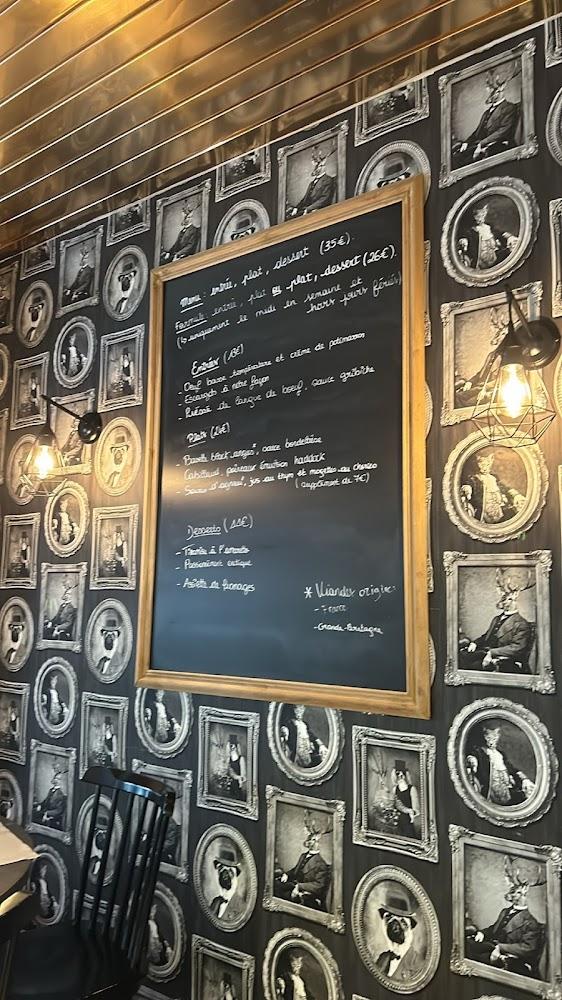 Menu : entrée, plat, dessert (35€).
Formule : entrée, plat ou plat, dessert (26€).
(↳ uniquement le midi en semaine et
hors jours fériés)
Entrées (13€)
- Oeuf basse température et crème de potimarron
- Escargots à notre façon
- Pressé de langue de boeuf, sauce gribiche
Plats (24€)
- Bavette black angus*, sauce bordelaise
Cabillaud, poireaux émulsion haddock
- Souris d'agneau*, jus au thym et mogettes au chorizo
(supplément de 7€)
Desserts (11€)
- Tiramisu à l'
- Passionément exotique
- Assiette de fromages
* Viandes origine :
- France
- Grande-Bretagne